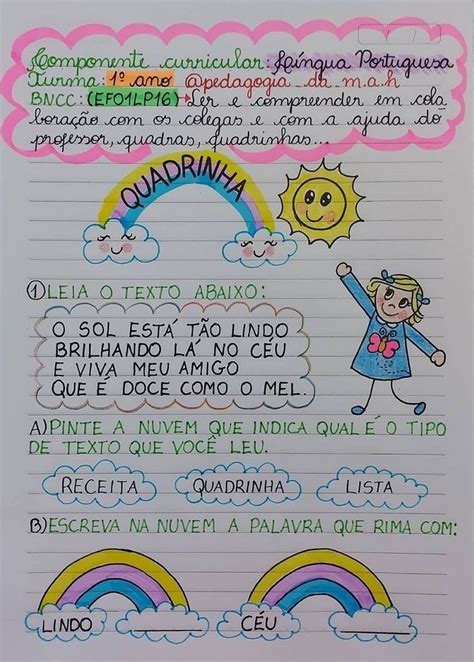 Componente curricular: Língua Portuguesa
Turma: 1º ano @pedagogia_da_m.a.h
BNCC: (EF01LP16)→Ler e compreender em cola
boração com os colegas e com a ajuda do
professor, quadras, quadrinhas...
QUADRINHA
1 LEIA O TEXTO ABAIXO:
O SOL ESTÁ TÃO LINDO
BRILHANDO LÁ NO CÉU
E VIVA MEU AMIGO
QUE É DOCE COMO O MEL.
A) PINTE A NUVEM QUE INDICA QUAL É O TIPO
DE TEXTO QUE VOCÊ LEU.
RECEITA QUADRINHA LISTA
B) ESCREVA NA NUVEM A PALAVRA QUE RIMA COM:
LINDO ________ CÉU ________